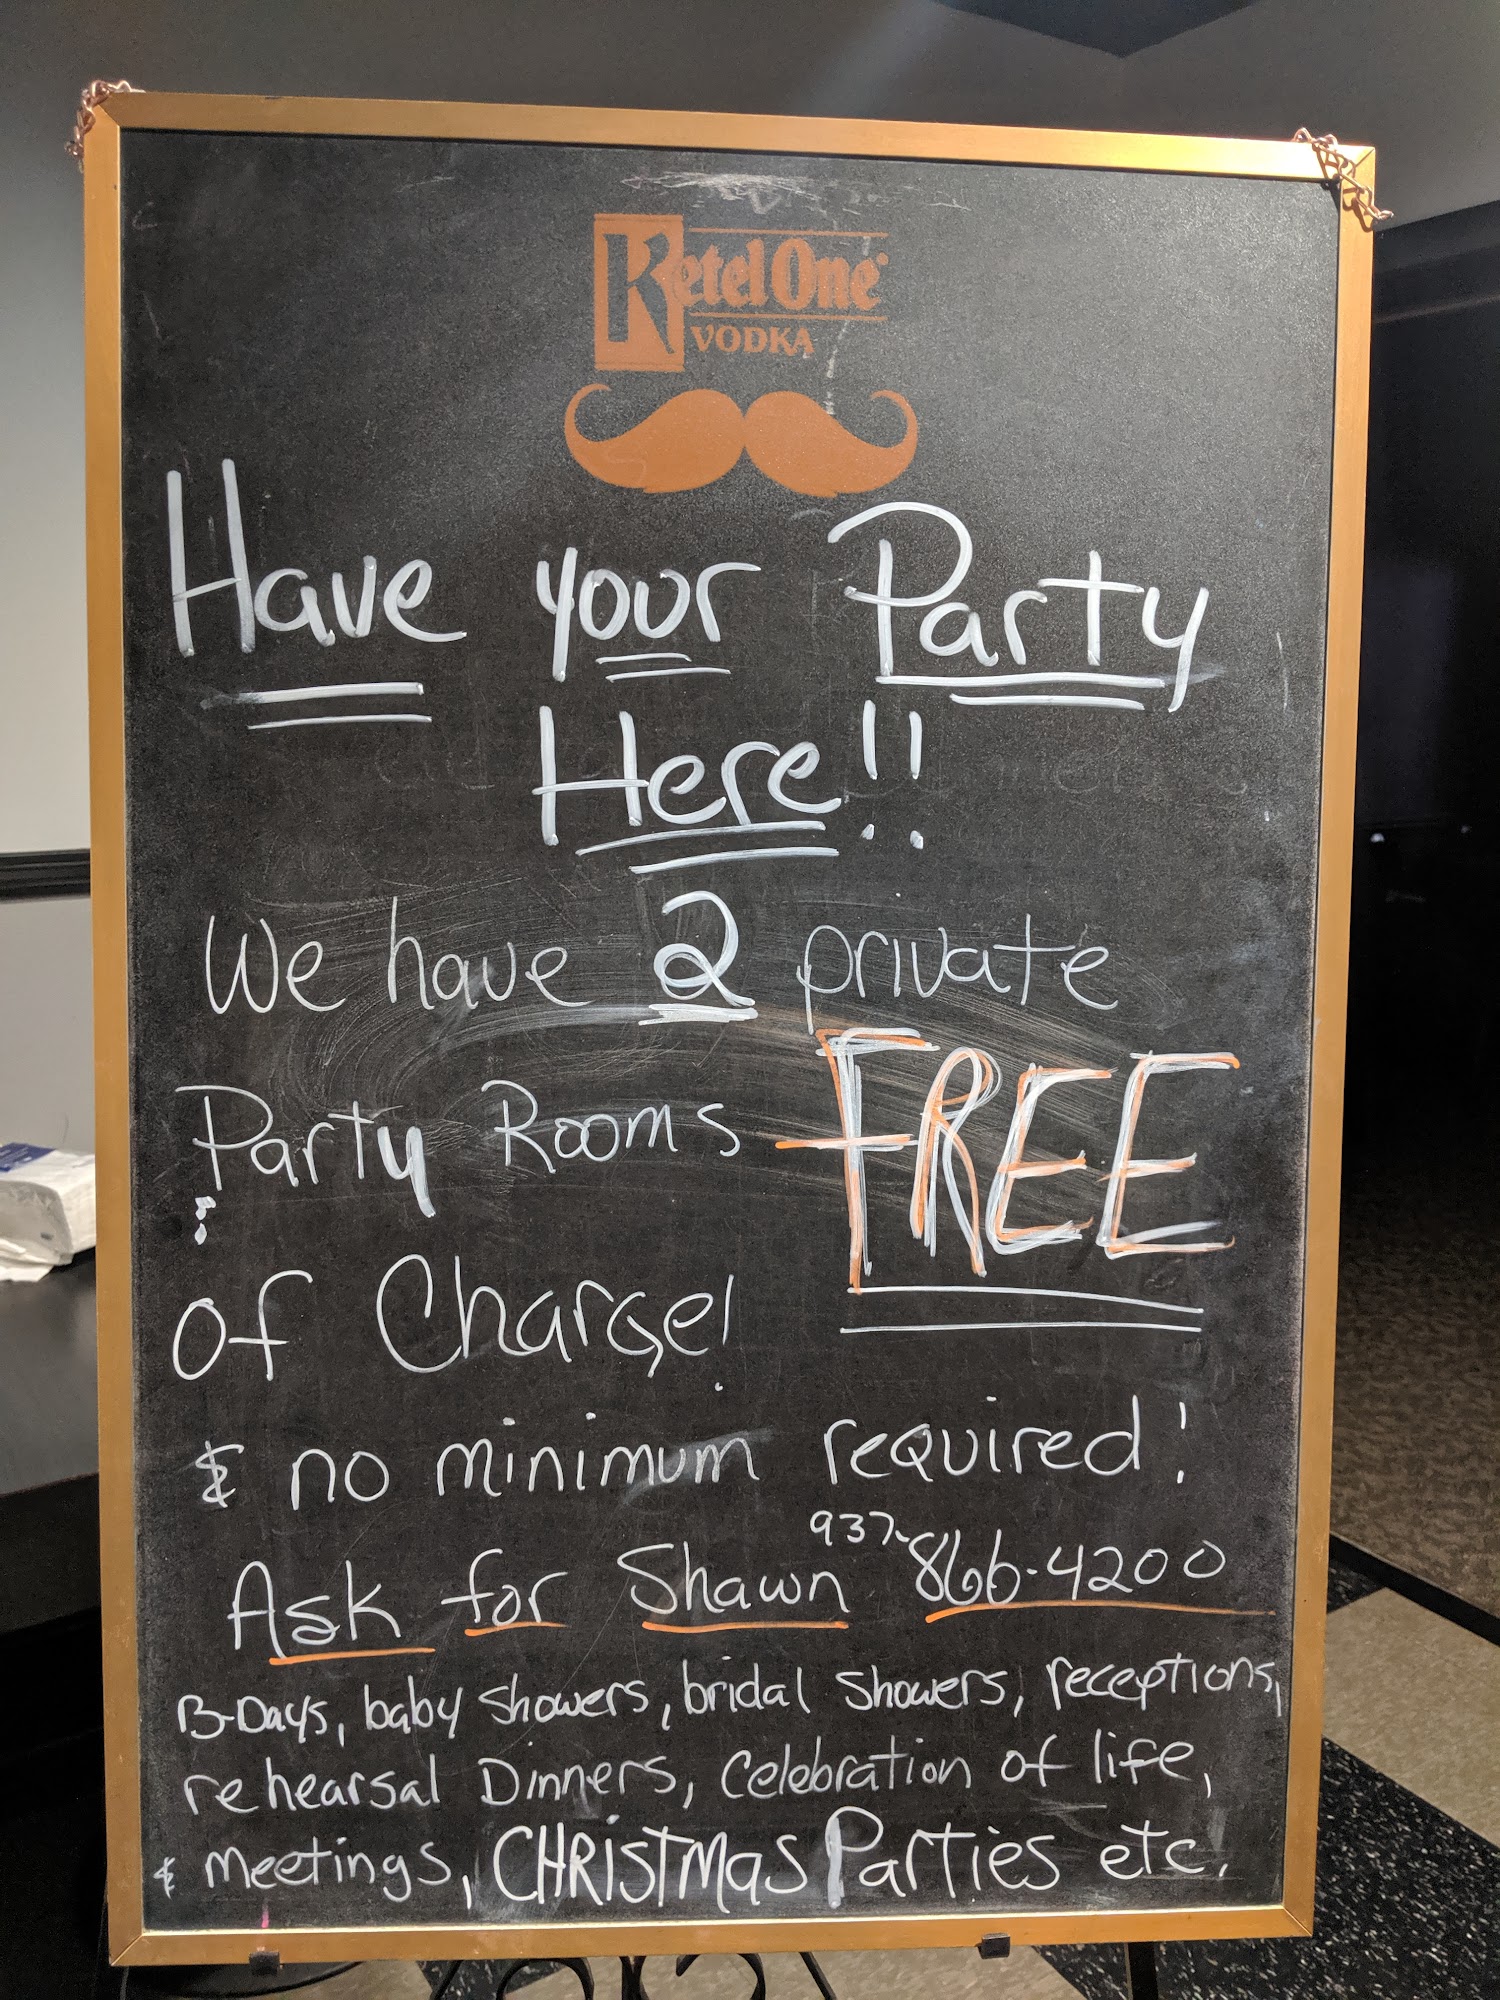 Ketel One
VODKA
Have your Party
Here!!
We have 2 private
Party Rooms - FREE
of Charge!
& no minimum required!
Ask for Shawn 937-866-4200
B-Days, baby showers, bridal showers, receptions,
rehearsal Dinners, Celebration of life,
& meetings, CHRISTMAS Parties etc.